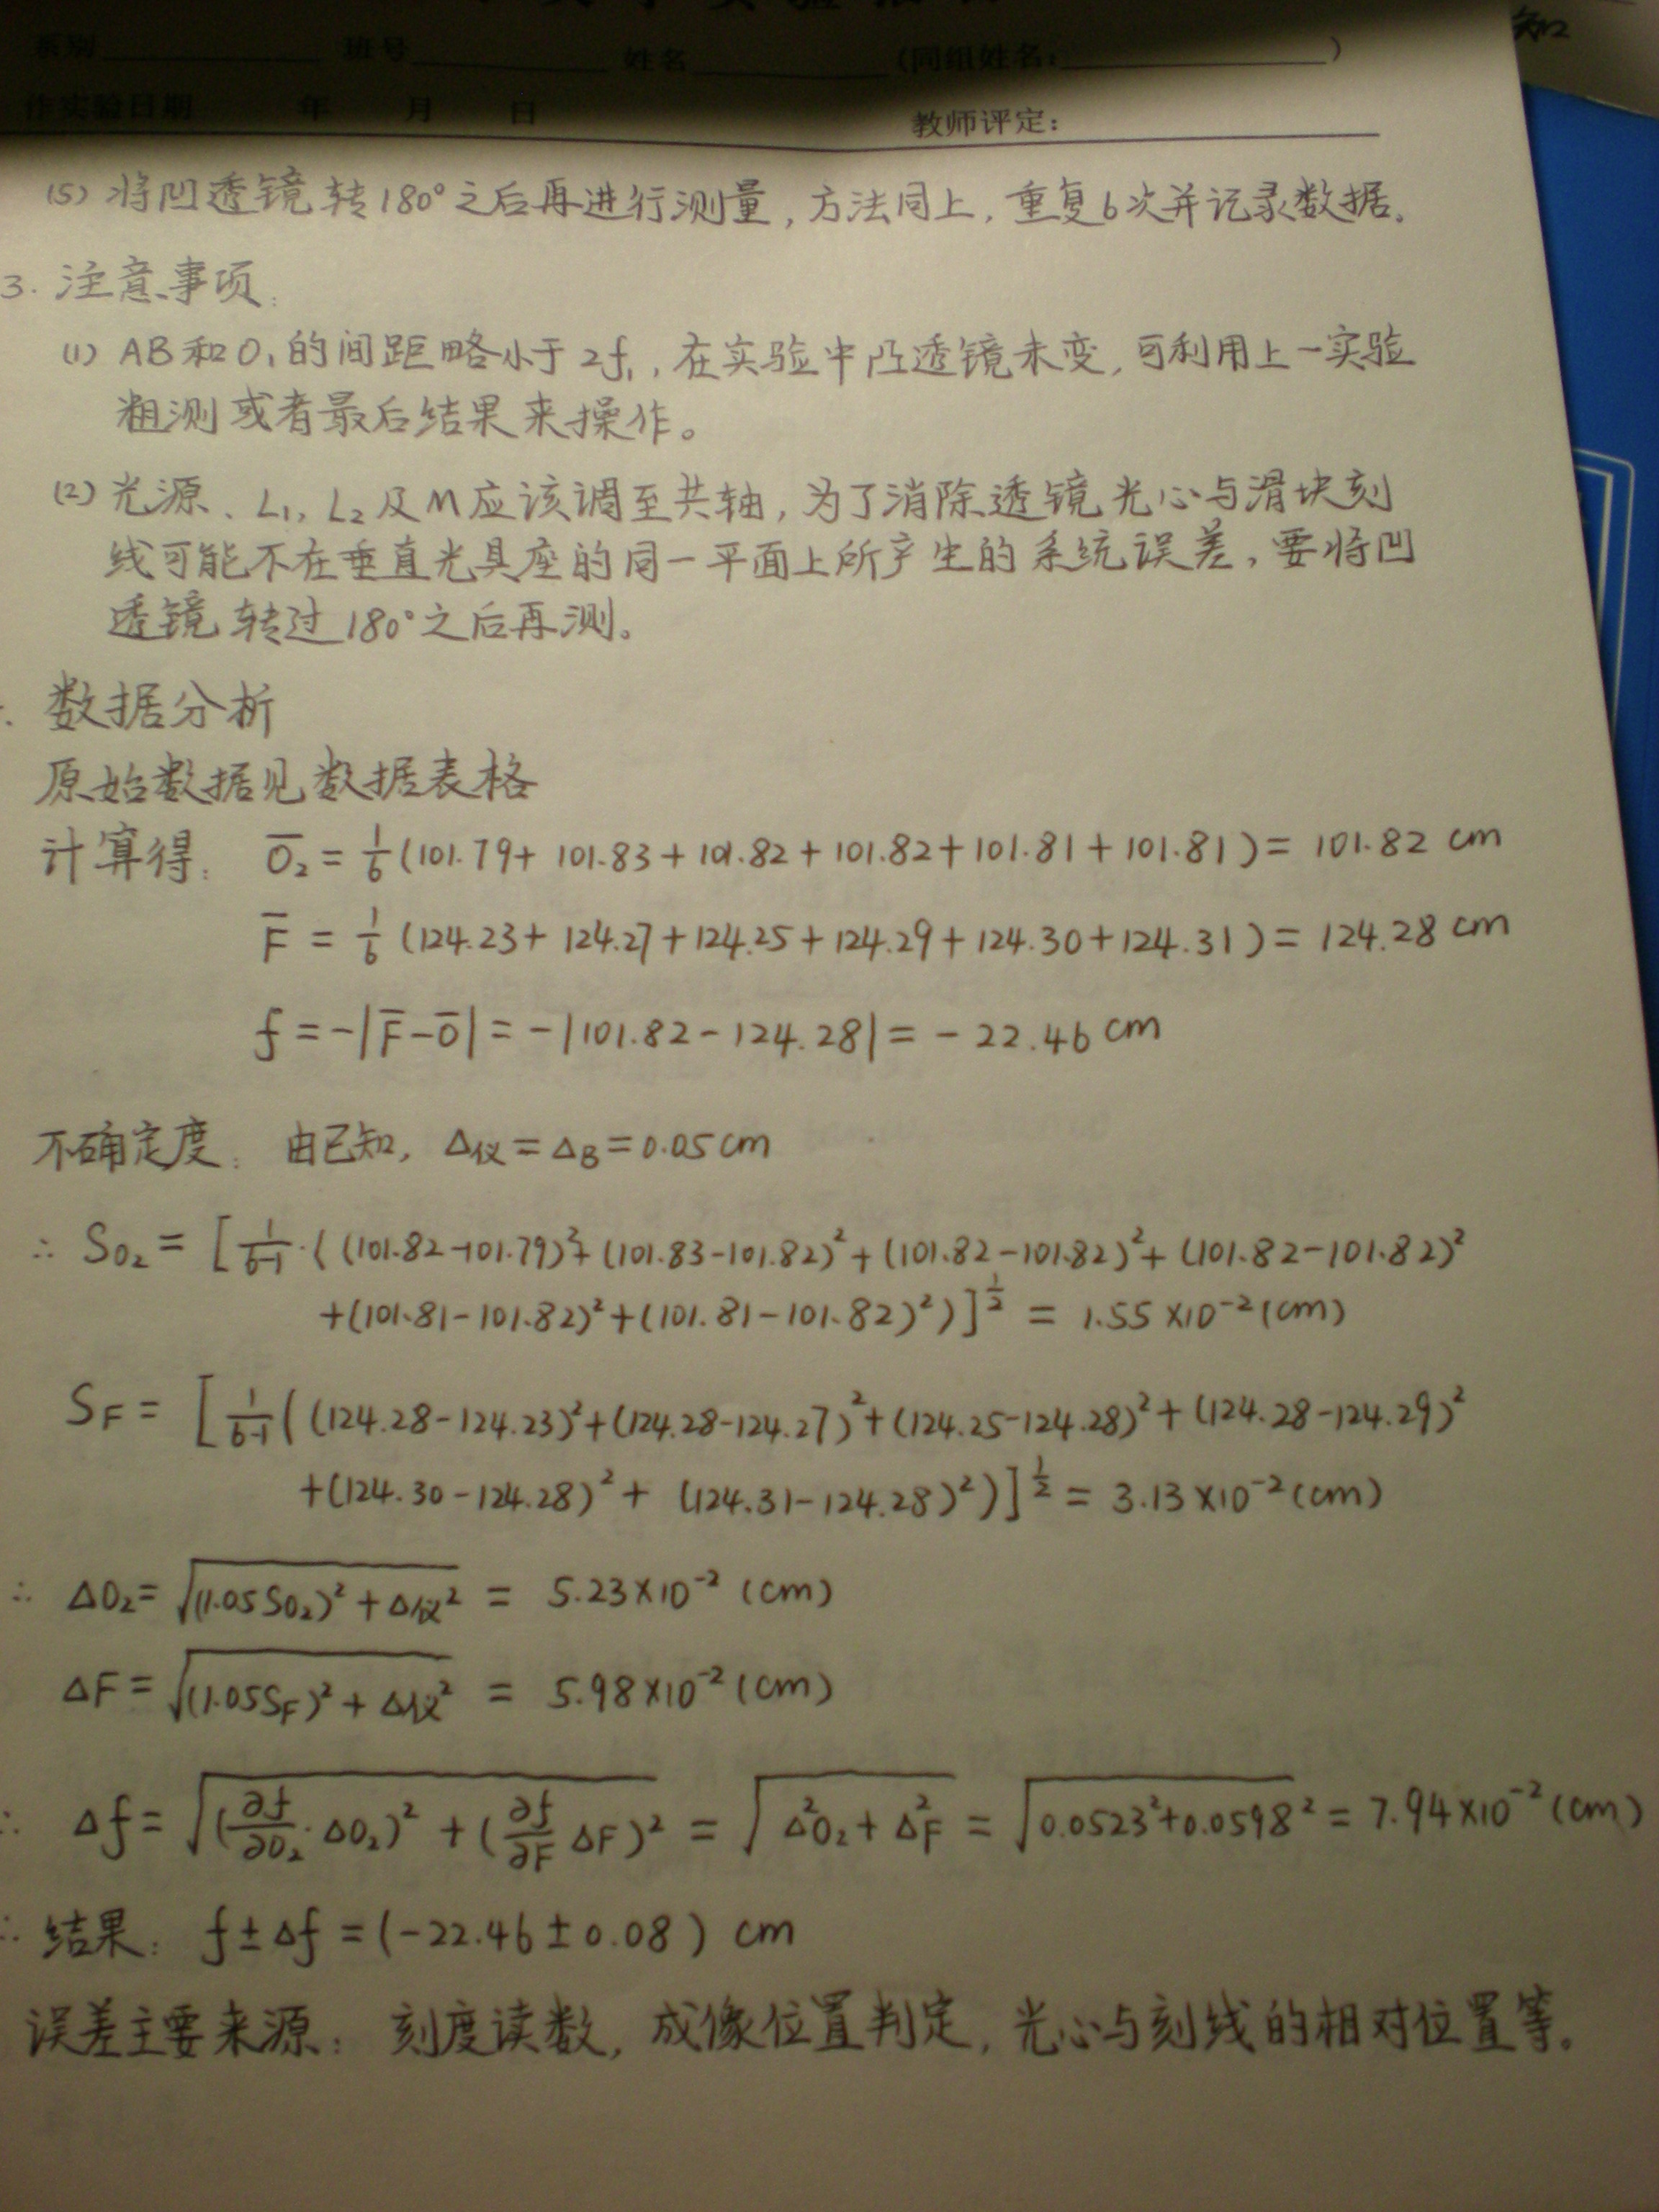 知
系别 班号 姓名 (同组姓名: )
作实验日期 年 月 日 教师评定:
(5) 将凹透镜转180°之后再进行测量, 方法同上, 重复6次并记录数据.
3. 注意事项:
(1) AB和O₁的间距略小于2f₁, 在实验中凸透镜未变, 可利用上一实验
粗测或者最后结果来操作。
(2) 光源、L₁, L₂及M应该调至共轴, 为了消除透镜光心与滑块刻
线可能不在垂直光具座的同一平面上所产生的系统误差, 要将凹
透镜转过180°之后再测。
数据分析
原始数据见数据表格
计算得: O̅₂ = 1/6 (101.79 + 101.83 + 101.82 + 101.82 + 101.81 + 101.81) = 101.82 cm
F̅ = 1/6 (124.23 + 124.27 + 124.25 + 124.29 + 124.30 + 124.31) = 124.28 cm
f = -|F̅-O̅| = -|101.82 - 124.28| = -22.46 cm
不确定度: 由已知, Δ仪 = ΔB = 0.05 cm
∴ S_O₂ = [1/(6-1)·((101.82-101.79)² + (101.83-101.82)² + (101.82-101.82)² + (101.82-101.82)²
+(101.81-101.82)² + (101.81-101.82)²)]^(1/2) = 1.55×10⁻² (cm)
S_F = [1/(6-1)((124.28-124.23)² + (124.28-124.27)² + (124.25-124.28)² + (124.28-124.29)²
+(124.30-124.28)² + (124.31-124.28)²)]^(1/2) = 3.13×10⁻² (cm)
∴ ΔO₂ = √((1.05S_O₂)² + Δ仪²) = 5.23×10⁻² (cm)
ΔF = √((1.05S_F)² + Δ仪²) = 5.98×10⁻² (cm)
∴ Δf = √((∂f/∂O₂·ΔO₂)² + (∂f/∂F ΔF)²) = √(Δ²O₂ + Δ²F) = √(0.0523² + 0.0598²) = 7.94×10⁻² (cm)
∴ 结果: f ± Δf = (-22.46 ± 0.08) cm
误差主要来源: 刻度读数, 成像位置判定, 光心与刻线的相对位置等.